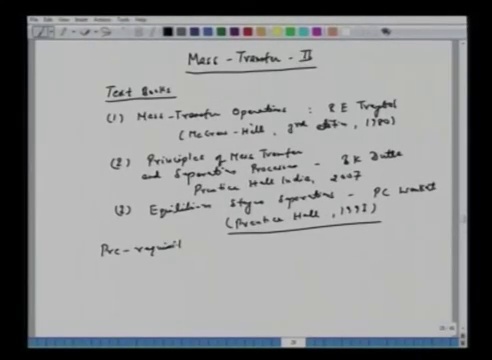 Mass-Transfer-II
Text Books
(1) Mass-Transfer Operations : R E Treybal
(McGraw-Hill, 3rd edition, 1980)
(2) Principles of Mass Transfer
and Separation Processes - B K Dutta
Prentice Hall India, 2007
(3) Equilibrium Stage Separations - PC Wankat
(Prentice Hall, 1993)
Pre-requisit